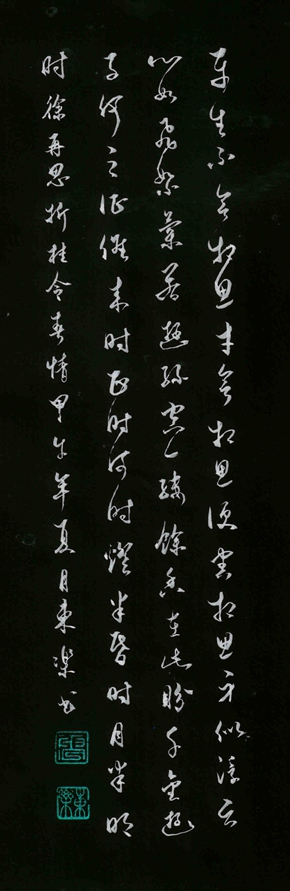 平生不会相思才会相思便害相思身似浮云
心如飞絮气若游丝空一缕余香在此盼千金游
子何之证候来时正是何时灯半昏时月半明
时徐再思折桂令春情甲午年夏月東梁书